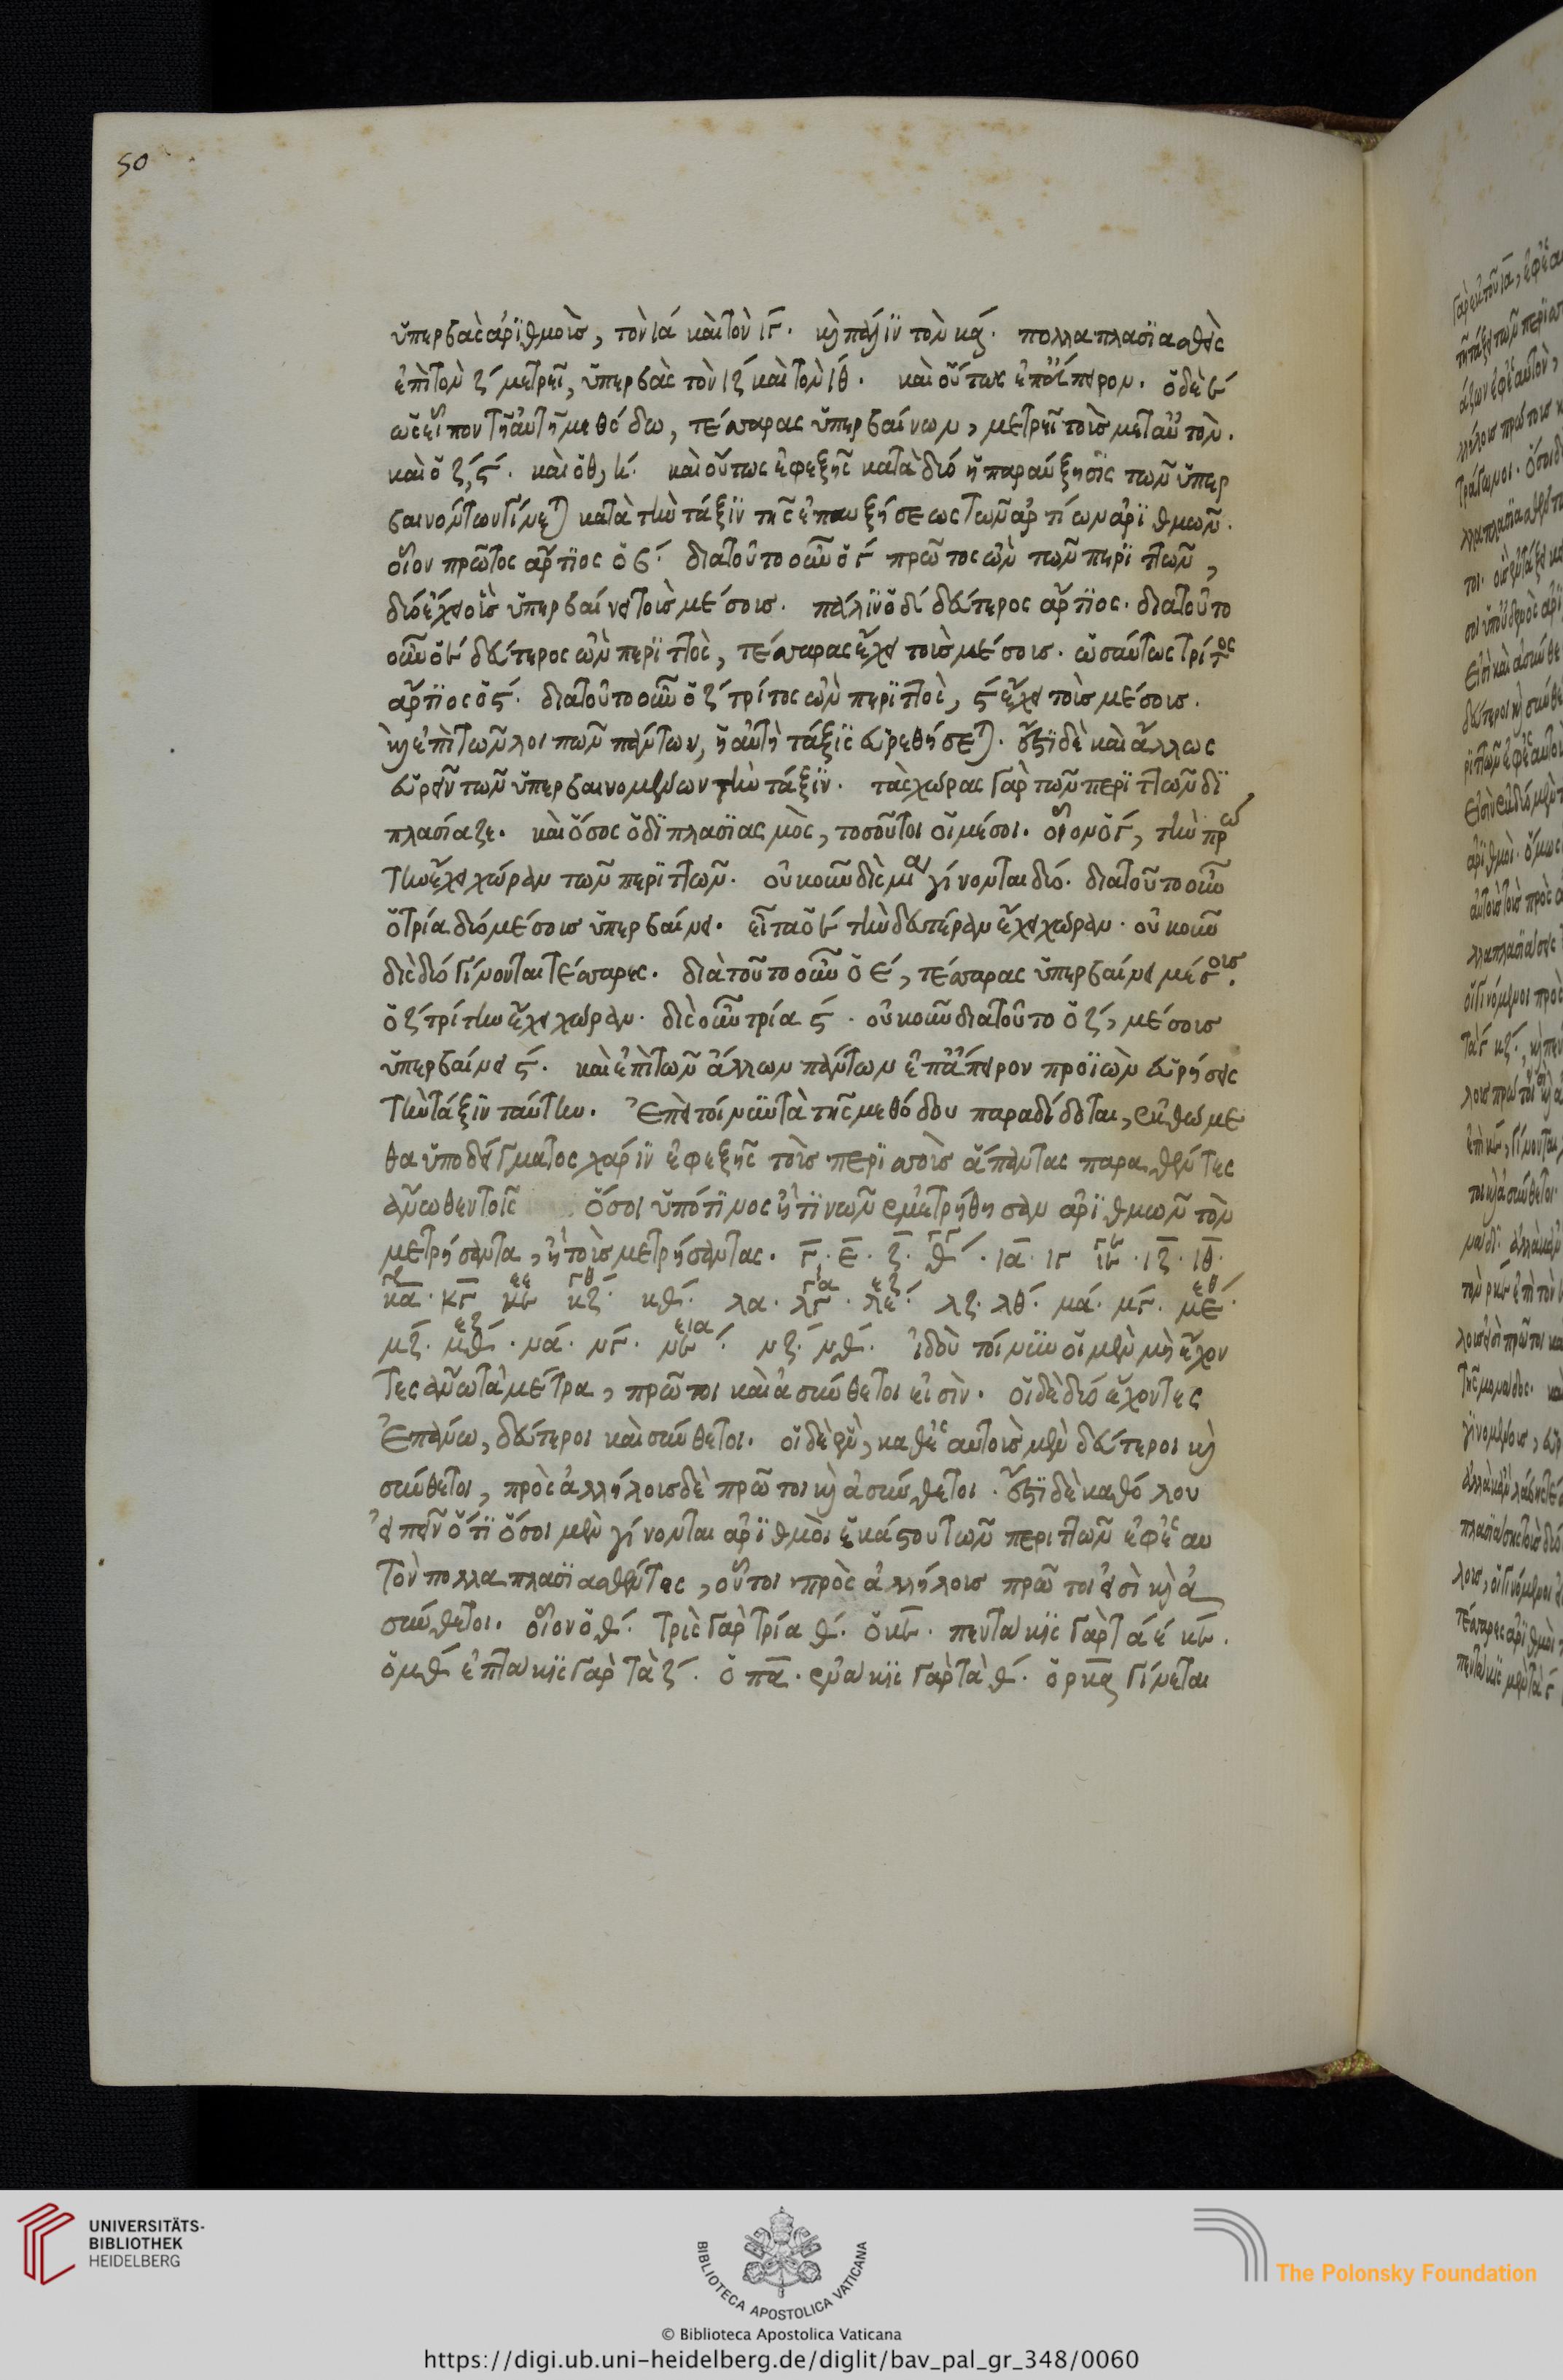 50
ὑπερβὰς ἀριθμοὺς, τὸν ια καὶ τὸν ιγ. καὶ πάλιν τὸν κα. πολλαπλασιασθεὶς
ἐπὶ τὸν ζ μετρεῖ, ὑπερβὰς τὸν ιζ καὶ τὸν ιθ. καὶ οὕτως ἐπ᾽ ἄπειρον. ὁ δὲ ε
ὡς εἶπον τῇ αὐτῇ μεθόδω, τέσσαρας ὑπερβαίνων, μετρεῖ τοὺς μετ᾽ αὐτὸν.
καὶ ὁ ζ, ς. καὶ ὁ θ, η. καὶ οὕτως ἐφεξῆς κατὰ δύο ἡ παραύξησις τῶν ὑπερ
βαινόντων γίνεται κατὰ τὴν τάξιν τῆς ἐπαυξήσεως τῶν ἀρτίων ἀριθμῶν.
οἷον πρῶτος ἄρτιος ὁ β. διὰ τοῦτο οὖν ὁ γ πρῶτος ὢν τῶν περιττῶν,
δύο ἔχει οὓς ὑπερβαίνει τοὺς μέσους. πάλιν ὁ δ δεύτερος ἄρτιος. διὰ τοῦτο
οὖν ὁ ε δεύτερος ὢν περιττὸς, τέσσαρας ἔχει τοὺς μέσους. ὡσαύτως τρίτος
ἄρτιος ὁ ς. διὰ τοῦτο οὖν ὁ ζ τρίτος ὢν περιττὸς, ς ἔχει τοὺς μέσους.
καὶ ἐπὶ τῶν λοιπῶν πάντων, ἡ αὐτὴ τάξις εὑρεθήσεται. ἔστι δὲ καὶ ἄλλως
εὑρεῖν τῶν ὑπερβαινομένων τὴν τάξιν. τὰς χώρας γὰρ τῶν περιττῶν δι
πλασίαζε. καὶ ὅσος ὁ διπλασιασμὸς, τοσοῦτοι οἱ μέσοι. οἷον ὁ γ, τὴν πρώ
την ἔχει χώραν τῶν περιττῶν. οὐκοῦν δὶς μία γίνονται δύο. διὰ τοῦτο οὖν
ὁ τρία δύο μέσους ὑπερβαίνει. εἶτα ὁ ε τὴν δευτέραν ἔχει χώραν. οὐκοῦν
δὶς δύο γίνονται τέσσαρες. διὰ τοῦτο οὖν ὁ ε, τέσσαρας ὑπερβαίνει μέσους.
ὁ ζ τρίτην ἔχει χώραν. δὶς οὖν τρία ς. οὐκοῦν διὰ τοῦτο ὁ ζ, μέσους
ὑπερβαίνει ς. καὶ ἐπὶ τῶν ἄλλων πάντων ἐπ᾽ ἄπειρον προϊὼν εὑρήσεις
τὴν τάξιν ταύτην. Ἐπεὶ τοίνυν τὰ τῆς μεθόδου παραδέδοται, ἐκθώμε
θα ὑποδείγματος χάριν ἐφεξῆς τοὺς περισσοὺς ἅπαντας παραθέντες
ἄνωθεν τοῖς ὅσοι ὑπό τινος ἤ τινων ἐμετρήθησαν ἀριθμῶν τὸν
μετρήσαντα, ἢ τοὺς μετρήσαντας. γ. ε. ζ. θ γγ. ια. ιγ ιε γε. ιζ. ιθ.
κα γζ. κγ κε εε κζ γθ. κθ. λα. λγ για. λε εζ. λζ. λθ. μα. μγ. με εθ.
μζ. μθ εζ. να. νγ. νε εια. νζ. νθ. ἰδοὺ τοίνυν οἱ μὲν μὴ ἔχον
τες ἄνω τὰ μέτρα, πρῶτοι καὶ ἀσύνθετοι εἰσὶν. οἱ δὲ δύο ἔχοντες
Ἐπάνω, δεύτεροι καὶ σύνθετοι. οἱ δὲ ἓν, καθ᾽ ἑαυτοὺς μὲν δεύτεροι καὶ
σύνθετοι, πρὸς ἀλλήλους δὲ πρῶτοι καὶ ἀσύνθετοι. ἔστι δὲ καθόλου
εἰπεῖν ὅτι ὅσοι μὲν γίνονται ἀριθμοὶ ἑκάστου τῶν περιττῶν ἐφ᾽ ἑαυ
τὸν πολλαπλασιασθέντες, οὗτοι πρὸς ἀλλήλους πρῶτοι εἰσὶ καὶ ἀ
σύνθετοι. οἷον ὁ θ. τρὶς γὰρ τρία θ. ὁ κε. πεντάκις γὰρ τὰ ε κε.
ὁ μθ ἑπτάκις γὰρ τὰ ζ. ὁ πα. ἐννάκις γὰρ τὰ θ. ὁ ρκα γίνεται
UNIVERSITÄTS-
BIBLIOTHEK
HEIDELBERG
BIBLIOTECA APOSTOLICA VATICANA
The Polonsky Foundation
© Biblioteca Apostolica Vaticana
https://digi.ub.uni-heidelberg.de/diglit/bav_pal_gr_348/0060